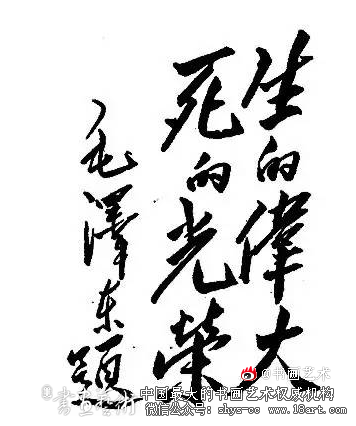 生的偉大
死的光榮
毛澤東題
@书画艺术
书画艺术
中国最大的书画艺术权威机构
微信公众号：shys-cc www.18art.com